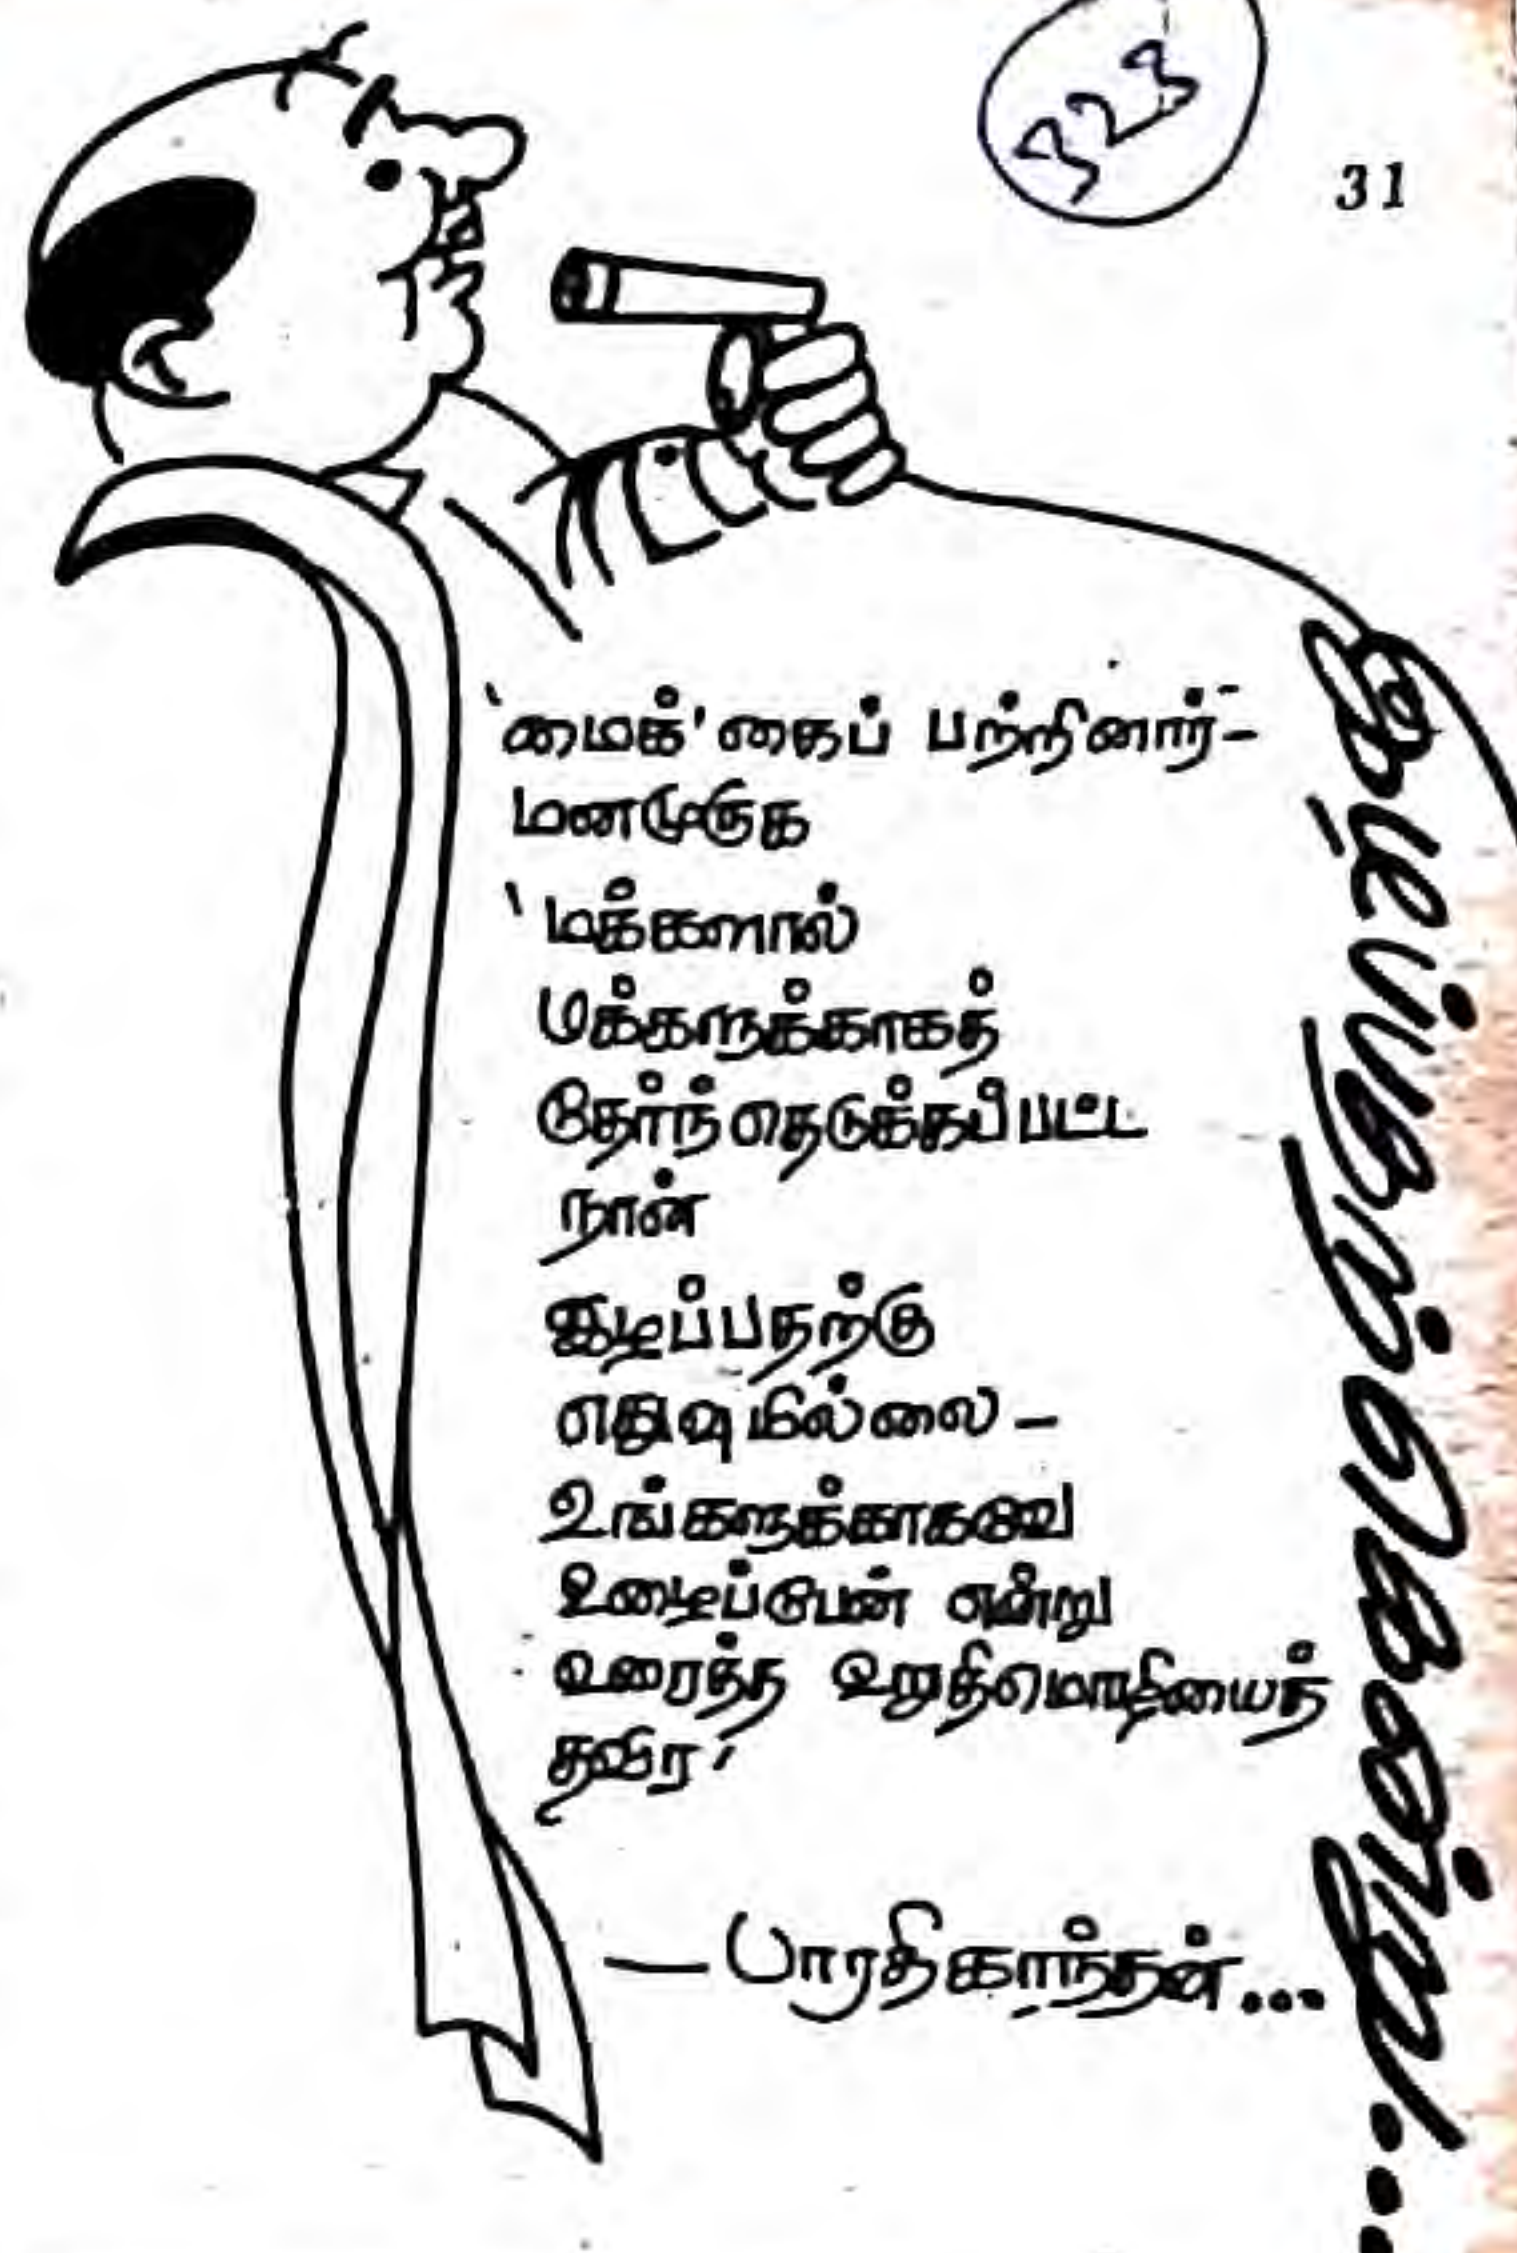 323
31
'மைக்'கைப் பற்றினார்-
மனமுருக
'மக்களால்
மக்களுக்காகத்
தேர்ந்தெடுக்கப்பட்ட
நான்
இழப்பதற்கு
எதுவுமில்லை -
உங்களுக்காகவே
உழைப்பேன் என்று
உரைத்த உறுதிமொழியைத்
தவிர'
— பாரதிகாந்தன்...
இழப்பதற்கில்லை